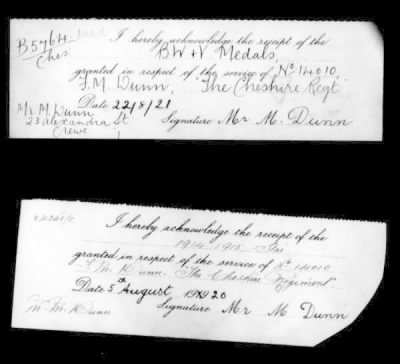 B5764
Ches
I hereby acknowledge the receipt of the
BW & V Medals,
granted in respect of the service of No 14010,
J.M. Dunn, "The Cheshire Regt"
Date 22/8/21
Mr M. Dunn
23 Alexandra St
Crewe
Signature Mr M. Dunn
I hereby acknowledge the receipt of the
1914-1915 Star
granted in respect of the service of No 14010
M. Dunn. The Cheshire Regiment".
Date 5th August 1920
Signature Mr M Dunn
M. Dunn